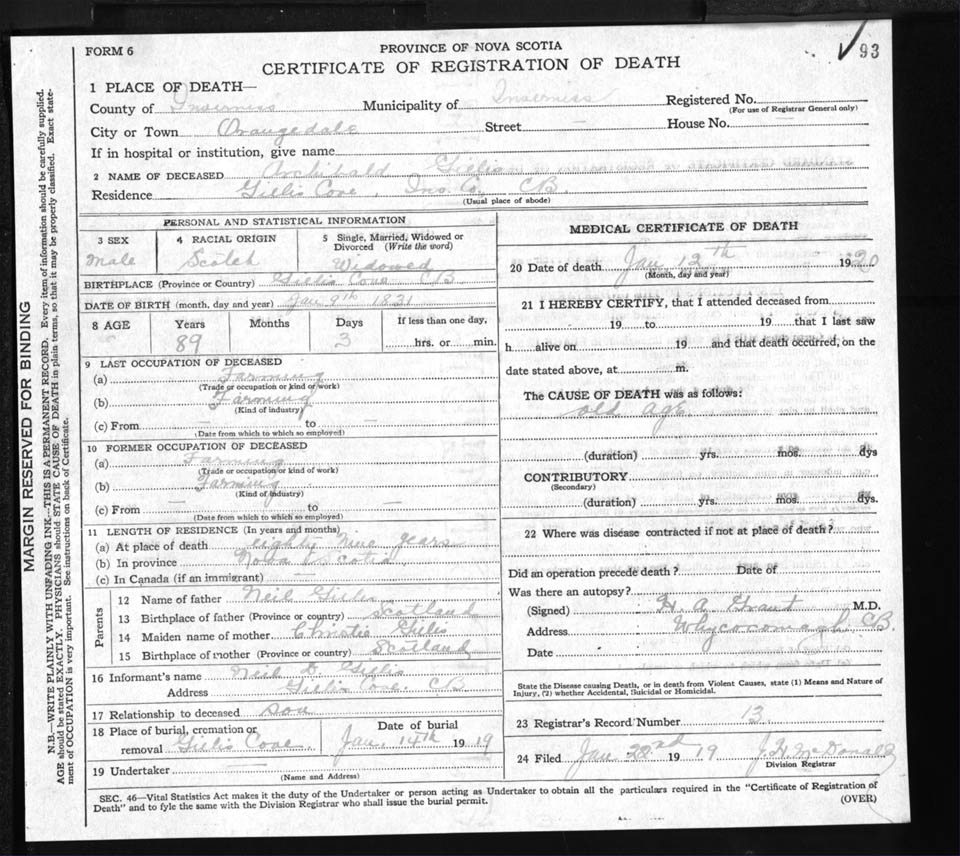 FORM 6
PROVINCE OF NOVA SCOTIA
93
CERTIFICATE OF REGISTRATION OF DEATH
1 PLACE OF DEATH—
County of Inverness Municipality of Inverness Registered No.
(For use of Registrar General only)
City or Town Orangedale Street — House No. —
If in hospital or institution, give name
2 NAME OF DECEASED Archibald Gillis
Residence Gillis Cove, Inv. Co. CB.
(Usual place of abode)
PERSONAL AND STATISTICAL INFORMATION
3 SEX 4 RACIAL ORIGIN 5 Single, Married, Widowed or Divorced (Write the word)
Male Scotch Widowed
BIRTHPLACE (Province or Country) Gillis Cove CB
DATE OF BIRTH (month, day and year) Jan 9th 1831
8 AGE Years Months Days If less than one day,
89 3 hrs. or min.
9 LAST OCCUPATION OF DECEASED
(a) Farming
(Trade or occupation or kind of work)
(b) Farming
(Kind of industry)
(c) From — to —
(Date from which to which so employed)
10 FORMER OCCUPATION OF DECEASED
(a) Farming
(Trade or occupation or kind of work)
(b) Farming
(Kind of industry)
(c) From — to —
(Date from which to which so employed)
11 LENGTH OF RESIDENCE (In years and months)
(a) At place of death eighty nine years
(b) In province Nova Scotia
(c) In Canada (if an immigrant) —
Parents
12 Name of father Neil Gillis
13 Birthplace of father (Province or country) Scotland
14 Maiden name of mother Christie Gillis
15 Birthplace of mother (Province or country) Scotland
16 Informant's name Neil D. Gillis
Address Gillis Cove. CB
17 Relationship to deceased son
18 Place of burial, cremation or Date of burial
removal Gillis Cove Jan 14th 1919
19 Undertaker
(Name and Address)
MEDICAL CERTIFICATE OF DEATH
20 Date of death Jan 12th 1920
(Month, day and year)
21 I HEREBY CERTIFY, that I attended deceased from
19 to 19 that I last saw
h alive on 19 and that death occurred, on the
date stated above, at m.
The CAUSE OF DEATH was as follows:
old age
(duration) yrs. mos. dys
CONTRIBUTORY
(Secondary)
(duration) yrs. mos. dys.
22 Where was disease contracted if not at place of death?
Did an operation precede death? Date of
Was there an autopsy?
(Signed) H. A. Grant M.D.
Address Whycocomagh CB.
Date
State the Disease causing Death, or in death from Violent Causes, state (1) Means and Nature of
Injury, (2) whether Accidental, Suicidal or Homicidal.
23 Registrar's Record Number 13
24 Filed Jan 22nd 1919 J. H. McDonald
Division Registrar
SEC. 46—Vital Statistics Act makes it the duty of the Undertaker or person acting as Undertaker to obtain all the particulars required in the "Certificate of Registration of
Death" and to fyle the same with the Division Registrar who shall issue the burial permit.
(OVER)
MARGIN RESERVED FOR BINDING
N.B.—WRITE PLAINLY WITH UNFADING INK—THIS IS A PERMANENT RECORD. Every item of information should be carefully supplied.
AGE should be stated EXACTLY. PHYSICIANS should STATE CAUSE OF DEATH in plain terms, so that it may be properly classified. Exact statement of OCCUPATION is very important. See instructions on back of Certificate.